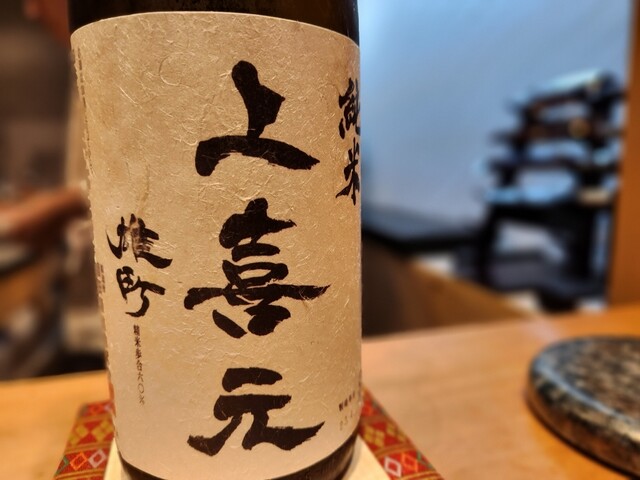 純米
上喜元
雄町
精米歩合六〇%